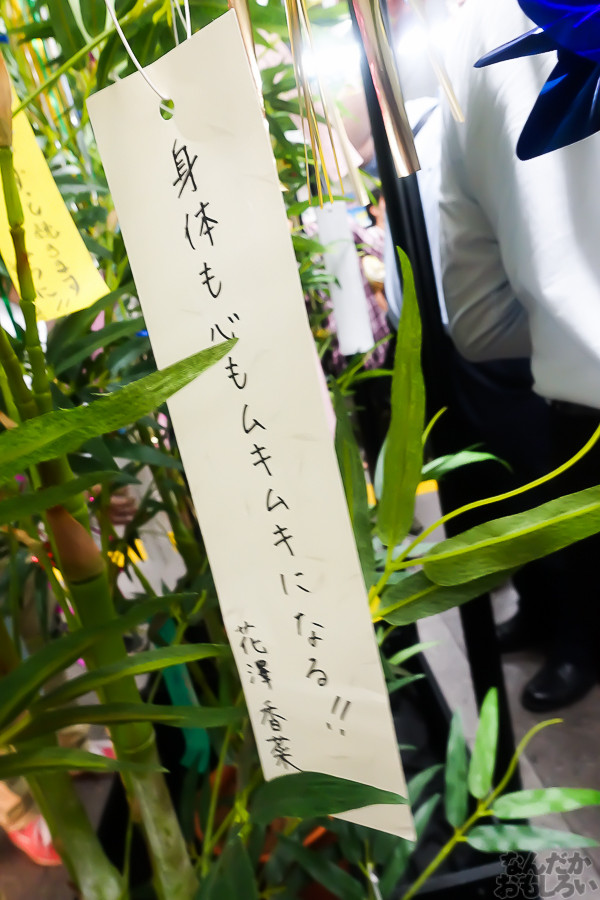 身体も心もムキムキになる!!
花澤香菜
なんだか
おもしろい